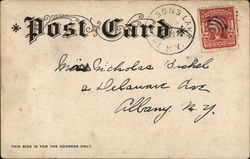 Post Card
SONS LA
N.Y.
Miss Nicholas Bickel
2 Delaware Ave
Albany N.Y.
THIS SIDE IS FOR THE ADDRESS ONLY.